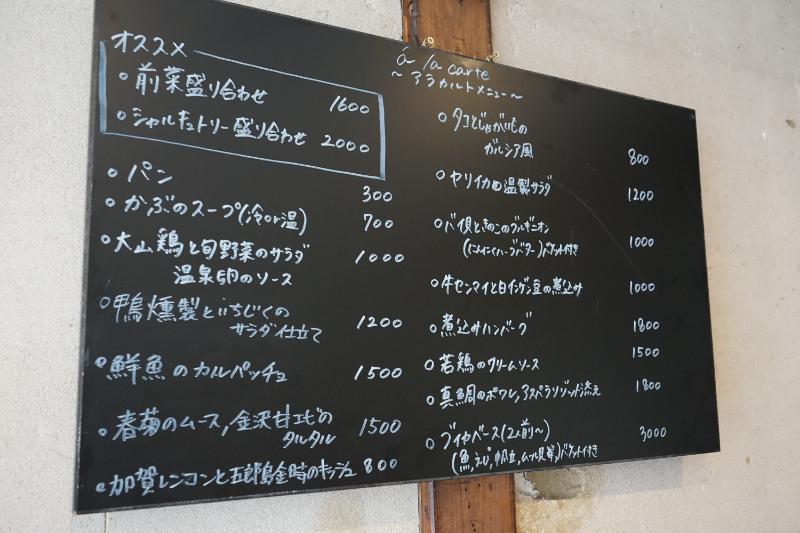 オススメ
○前菜盛り合わせ 1600
○シャルキュトリー盛り合わせ 2000
○パン 300
○かぶのスープ(冷or温) 700
○大山鶏と旬野菜のサラダ 1000
温泉卵のソース
○鴨燻製といちじくの
サラダ仕立て 1200
○鮮魚のカルパッチョ 1500
○春菊のムース,金沢甘エビの 1500
タルタル
○加賀レンコンと五郎島金時のキッシュ 800
á la carte
~アラカルトメニュー~
○タコとじゃがいもの
ガルシア風 800
○ヤリイカの温製サラダ 1200
○バイ貝ときのこのブルギニオン 1000
(にんにくハーブバター)バケット付き
○牛センマイと白インゲン豆の煮込み 1000
○煮込みハンバーグ 1800
○若鶏のクリームソース 1500
○真鯛のポワレ,アスパラリゾット添え 1800
○ブイヤベース(2人前~) 3000
(魚,えび,帆立,ムール貝等)バケット付き